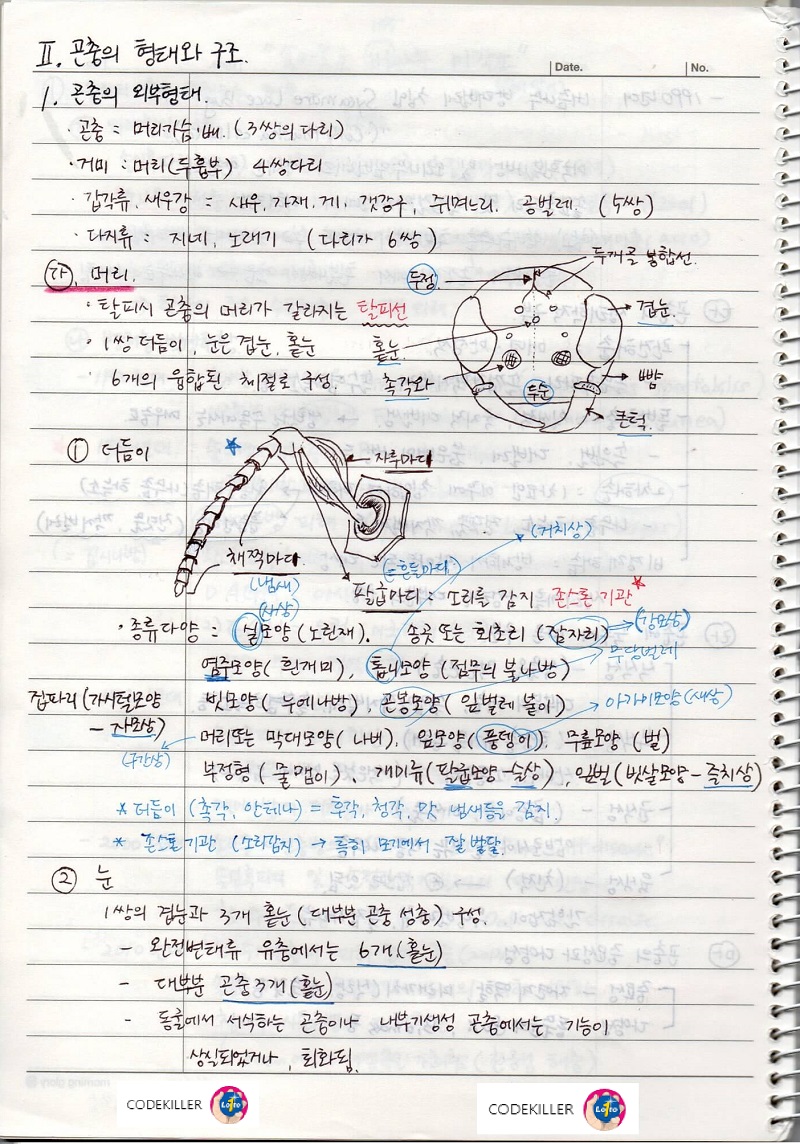 II. 곤충의 형태와 구조.
Date.
No.
1. 곤충의 외부형태.
· 곤충 : 머리가슴·배. (3쌍의 다리)
· 거미 : 머리(두흉부) 4쌍다리
· 갑각류. 새우강 = 새우, 가재, 게, 갯강구, 쥐며느리. 공벌레. (5쌍)
· 다지류 : 지네, 노래기 (다리가 6쌍)
㉮. 머리.
두정
두개골 봉합선.
· 탈피시 곤충의 머리가 갈라지는 탈피선
겹눈.
· 1쌍 더듬이, 눈은 겹눈, 홑눈
홑눈.
· 6개의 융합된 체절로 구성.
촉각와
두순
뺨
큰턱.
① 더듬이
자루마디
채찍마디.
(냄새)
(=흔들마디)
(거치상)
팔굽마디 : 소리를 감지 존스톤기관
(사상)
· 종류다양 = 실모양 (노린재). 송곳 또는 회초리 (잠자리)
(강모상)
염주모양 (흰개미), 톱니모양 (점무늬 불나방)
무당벌레
집파리 (가시털모양
빗모양 (누에나방), 곤봉모양 (잎벌레 붙이)
아가미모양 (새상)
- 자모상)
(구간상)
머리또는 막대모양 (나비), 잎모양 (풍뎅이), 무릎모양 (벌)
부정형 (물맴이). 개미류 (팔굽모양-슬상), 잎벌 (빗살모양-즐치상)
* 더듬이 (촉각, 안테나) = 후각, 청각, 맛 냄새등을 감지.
* 존스톤기관 (소리감지) → 특히 모기에서 잘 발달.
② 눈
1쌍의 겹눈과 3개 홑눈 (대부분 곤충 성충) 구성.
- 완전변태류 유충에서는 6개(홑눈)
- 대부분 곤충3개 (홑눈)
- 동굴에서 서식하는 곤충이나 내부기생성 곤충에서는 기능이
상실되었거나, 퇴화됨.
CODEKILLER Lotto
CODEKILLER Lotto